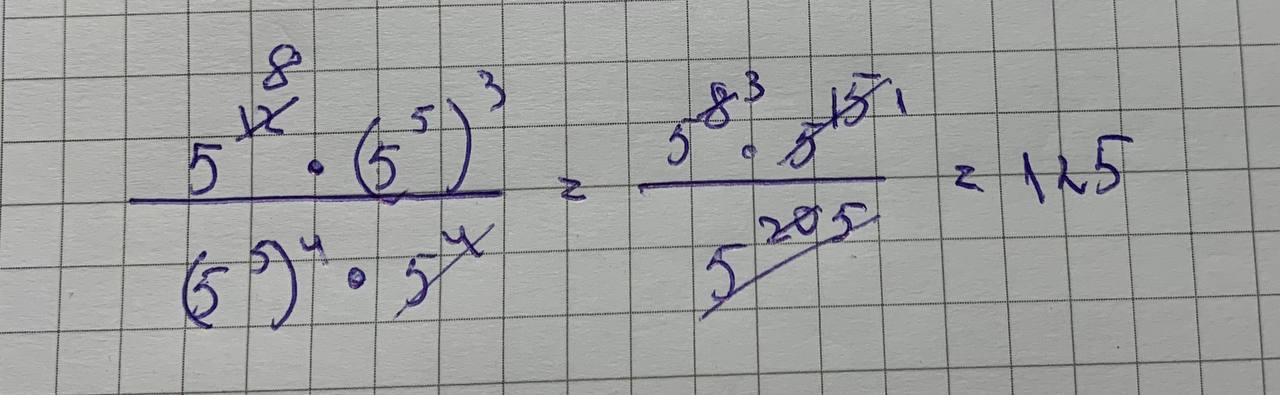 5^12 8 · (5^5)^3 / (5^5)^4 · 5^4 = 5^8 3 · 5^15 1 / 5^20 5 = 125